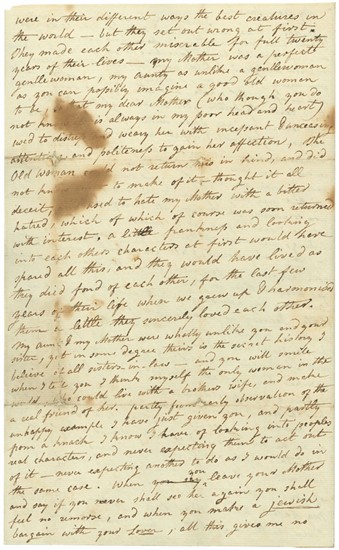 were in their different ways the best creatures in
the world – but they set out wrong at first.
They made each other miserable for full twenty
years of their lives – my Mother was a perfect
gentlewoman, my aunty as unlike a gentlewoman
as you can possibly imagine a good old woman
to be, that my dear Mother (who though you do
not is always in my poor head and heart)
used to distress and weary her with incessant & unceasing
attention and politeness to gain her affection, The
Old woman could not return this in kind, and did
not to make of it – thought it all
deceit, used to hate my Mother with a bitter
hatred, which of which of course was soon returned
with interest, a little frankness and looking
into each others characters at first would have
spared all this, and they would have lived as
they died fond of each other, for the last few
years of their life when we grew up & harmonised
them a little they sincerely loved each other.
My aunt & my Mother were wholly unlike you and your
sister, yet in some degree theirs is the secret history I
believe of all sisters-in-law – and you will smile
when I tell you I think myself the only woman in the
world who could live with a brothers wife, and make
a real friend of her. partly from early observation of the
unhappy example I have just given you, and partly
from a knack I know I have of looking into peoples
real characters, and never expecting them to act out
of it – never expecting another to do as I would do in
the same case. When you leave your Mother
and say if you never shall see her again you shall
feel no remorse, and when you make a jewish
bargain with your Lover, all this gives me no